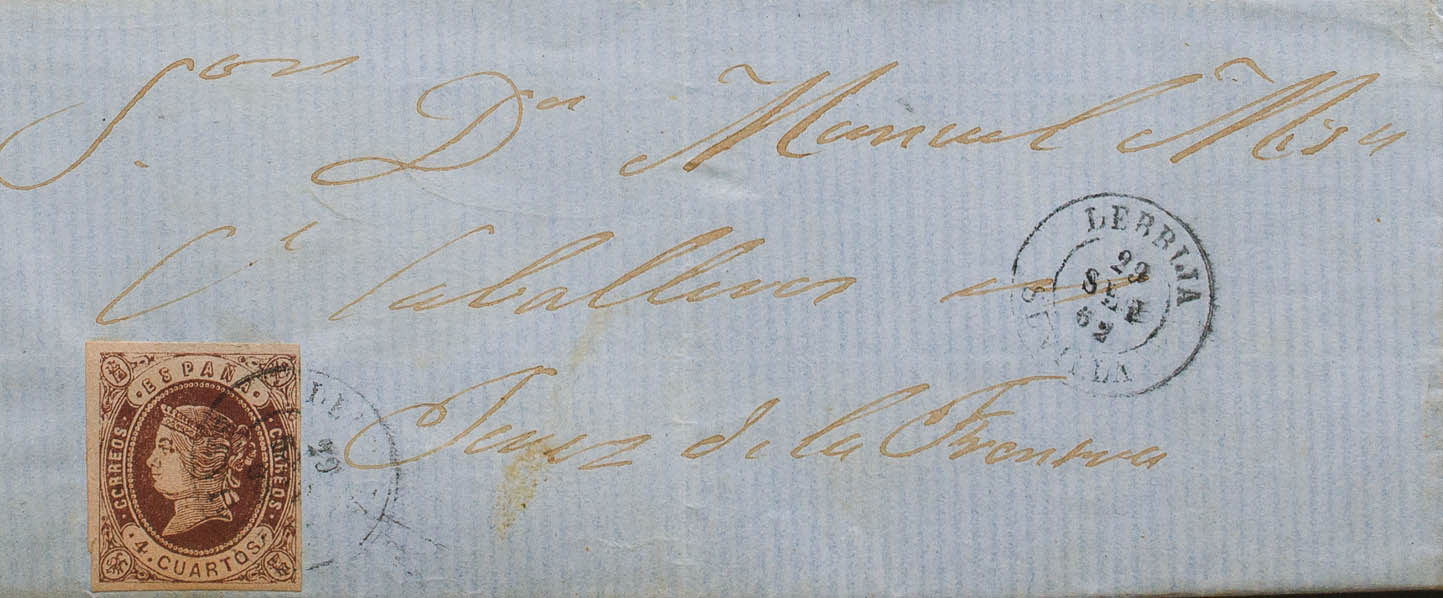 Sor Dn Manuel Misa
Ce Caballeros
Jerez de la Frontera
LEBRIJA
23
SEE
62
SEVILLA
ESPAÑA
CORREOS
CORREOS
4. CUARTOS